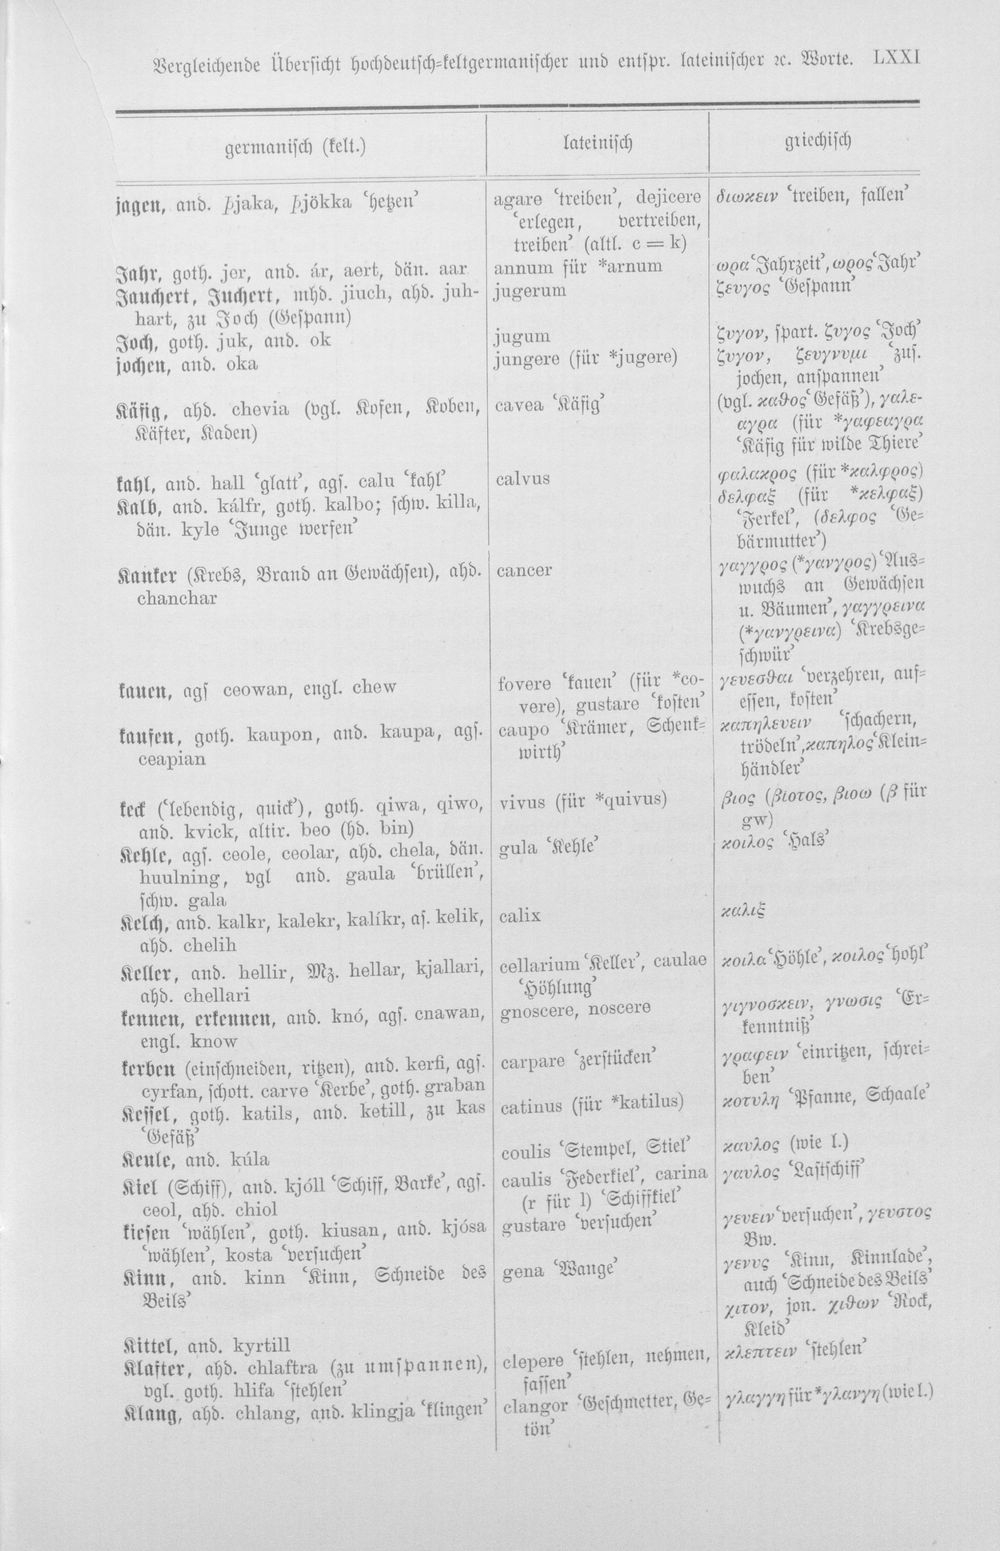 Vergleichende Übersicht hochdeutsch-keltgermanischer und entspr. lateinischer ꝛc. Worte. LXXI
germanisch (kelt.)
lateinisch
griechisch
jagen, and. þjaka, þjökka ‘hetzen’
agare ‘treiben’, dejicere
‘erlegen, vertreiben,
treiben’ (altl. c = k)
διωκειν ‘treiben, fallen’
Jahr, goth. jer, and. ár, aert, dän. aar
annum für *arnum
ωρα ‘Jahrzeit’, ωρος ‘Jahr’
Jauchert, Juchert, mhd. jiuch, ahd. juh-
hart, zu Joch (Gespann)
jugerum
ζευγος ‘Gespann’
Joch, goth. juk, and. ok
jugum
ζυγον, spart. ζυγος ‘Joch’
jochen, and. oka
jungere (für *jugere)
ζυγον, ζευγνυμι ‘zus.
jochen, anspannen’
Käfig, ahd. chevia (vgl. Kofen, Koben,
Käfter, Kaden)
cavea ‘Käfig’
(vgl. καθος ‘Gefäß’), γαλε-
αγρα (für *γαφεαγρα
‘Käfig für wilde Thiere’
kahl, and. hall ‘glatt’, ags. calu ‘kahl’
calvus
φαλακρος (für *καλφρος)
Kalb, and. kálfr, goth. kalbo; schw. killa,
dän. kyle ‘Junge werfen’
δελφαξ (für *κελφαξ)
‘Ferkel’, (δελφος ‘Ge-
bärmutter’)
Kanker (Krebs, Brand an Gewächsen), ahd.
chanchar
cancer
γαγγρος (*γανγρος) ‘Aus-
wuchs an Gewächsen
u. Bäumen’, γαγγρεινα
(*γανγρεινα) ‘Krebsge-
schwür’
kauen, ags ceowan, engl. chew
fovere ‘kauen’ (für *co-
vere), gustare ‘kosten’
γευεσθαι ‘verzehren, auf-
essen, kosten’
kaufen, goth. kaupon, and. kaupa, ags.
ceapian
caupo ‘Krämer, Schenk-
wirth’
καπηλευειν ‘schachern,
trödeln’, καπηλος ‘Klein-
händler’
keck (‘lebendig, quick’), goth. qiwa, qiwo,
and. kvick, altir. beo (hd. bin)
vivus (für *quivus)
βιος (βιοτος, βιοω (β für
gw)
Kehle, ags. ceole, ceolar, ahd. chela, dän.
huulning, vgl and. gaula ‘brüllen’,
schw. gala
gula ‘Kehle’
κοιλος ‘Hals’
Kelch, and. kalkr, kalekr, kalíkr, as. kelik,
ahd. chelih
calix
καλιξ
Keller, and. hellir, Mz. hellar, kjallari,
ahd. chellari
cellarium ‘Keller’, caulae
‘Höhlung’
κοιλα ‘Höhle’, κοιλος ‘hohl’
kennen, erkennen, and. knó, ags. cnawan,
engl. know
gnoscere, noscere
γιγνοσκειν, γνωσις ‘Er-
kenntniß’
kerben (einschneiden, ritzen), and. kerfi, ags.
cyrfan, schott. carve ‘Kerbe’, goth. graban
carpare ‘zerstücken’
γραφειν ‘einritzen, schrei-
ben’
Kessel, goth. katils, and. ketill, zu kas
‘Gefäß’
catinus (für *katilus)
κοτυλη ‘Pfanne, Schaale’
Keule, and. kúla
coulis ‘Stempel, Stiel’
καυλος (wie l.)
Kiel (Schiff), and. kjóll ‘Schiff, Barke’, ags.
ceol, ahd. chiol
caulis ‘Federkiel’, carina
(r für l) ‘Schiffkiel’
γαυλος ‘Lastschiff’
kiesen ‘wählen’, goth. kiusan, and. kjósa
‘wählen’, kosta ‘versuchen’
gustare ‘versuchen’
γευειν ‘versuchen’, γευστος
Bw.
Kinn, and. kinn ‘Kinn, Schneide des
Beils’
gena ‘Wange’
γενυς ‘Kinn, Kinnlade’,
auch ‘Schneide des Beils’
Kittel, and. kyrtill
χιτον, jon. χιθων ‘Rock,
Kleid’
Klafter, ahd. chlaftra (zu umspannen),
vgl. goth. hlifa ‘stehlen’
clepere ‘stehlen, nehmen,
fassen’
κλεπτειν ‘stehlen’
Klang, ahd. chlang, and. klingja ‘klingen’
clangor ‘Geschmetter, Ge-
tön’
γλαγγη für *γλανγη (wie l.)